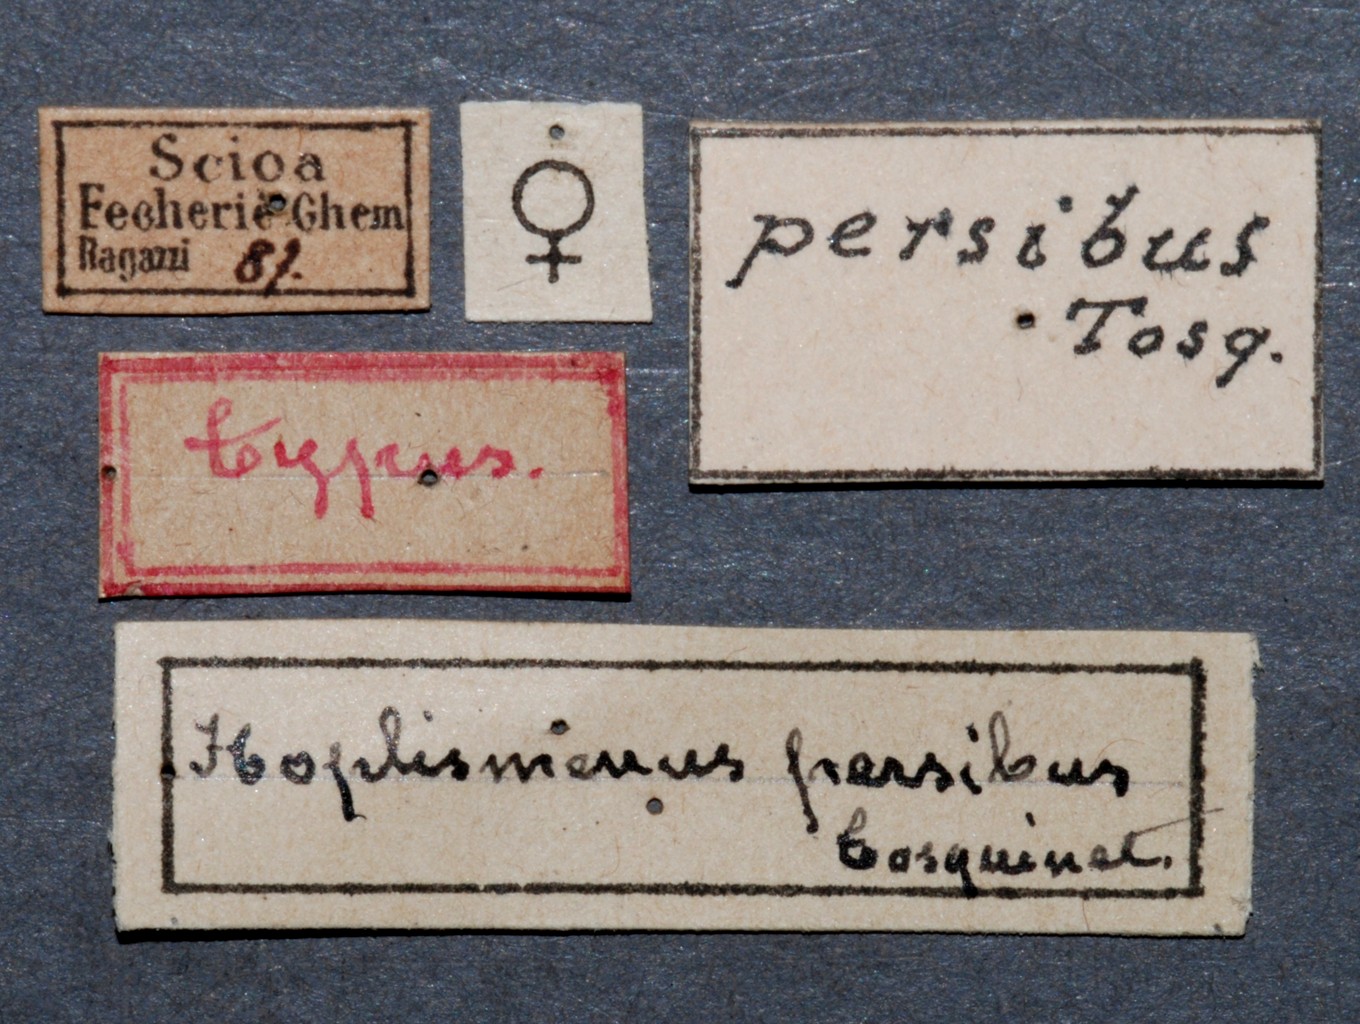 Scioa
Fecherie-Ghem
Ragazzi 87.
♀
persibus
Tosq.
Typus.
Hoplismenus persibus
Tosquinet.